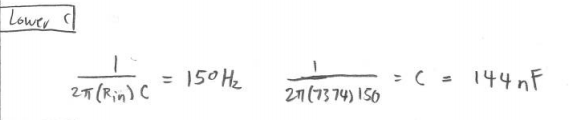 Lower C
1 / 2π(Rin) C = 150Hz    1 / 2π(7374) 150 = C = 144nF